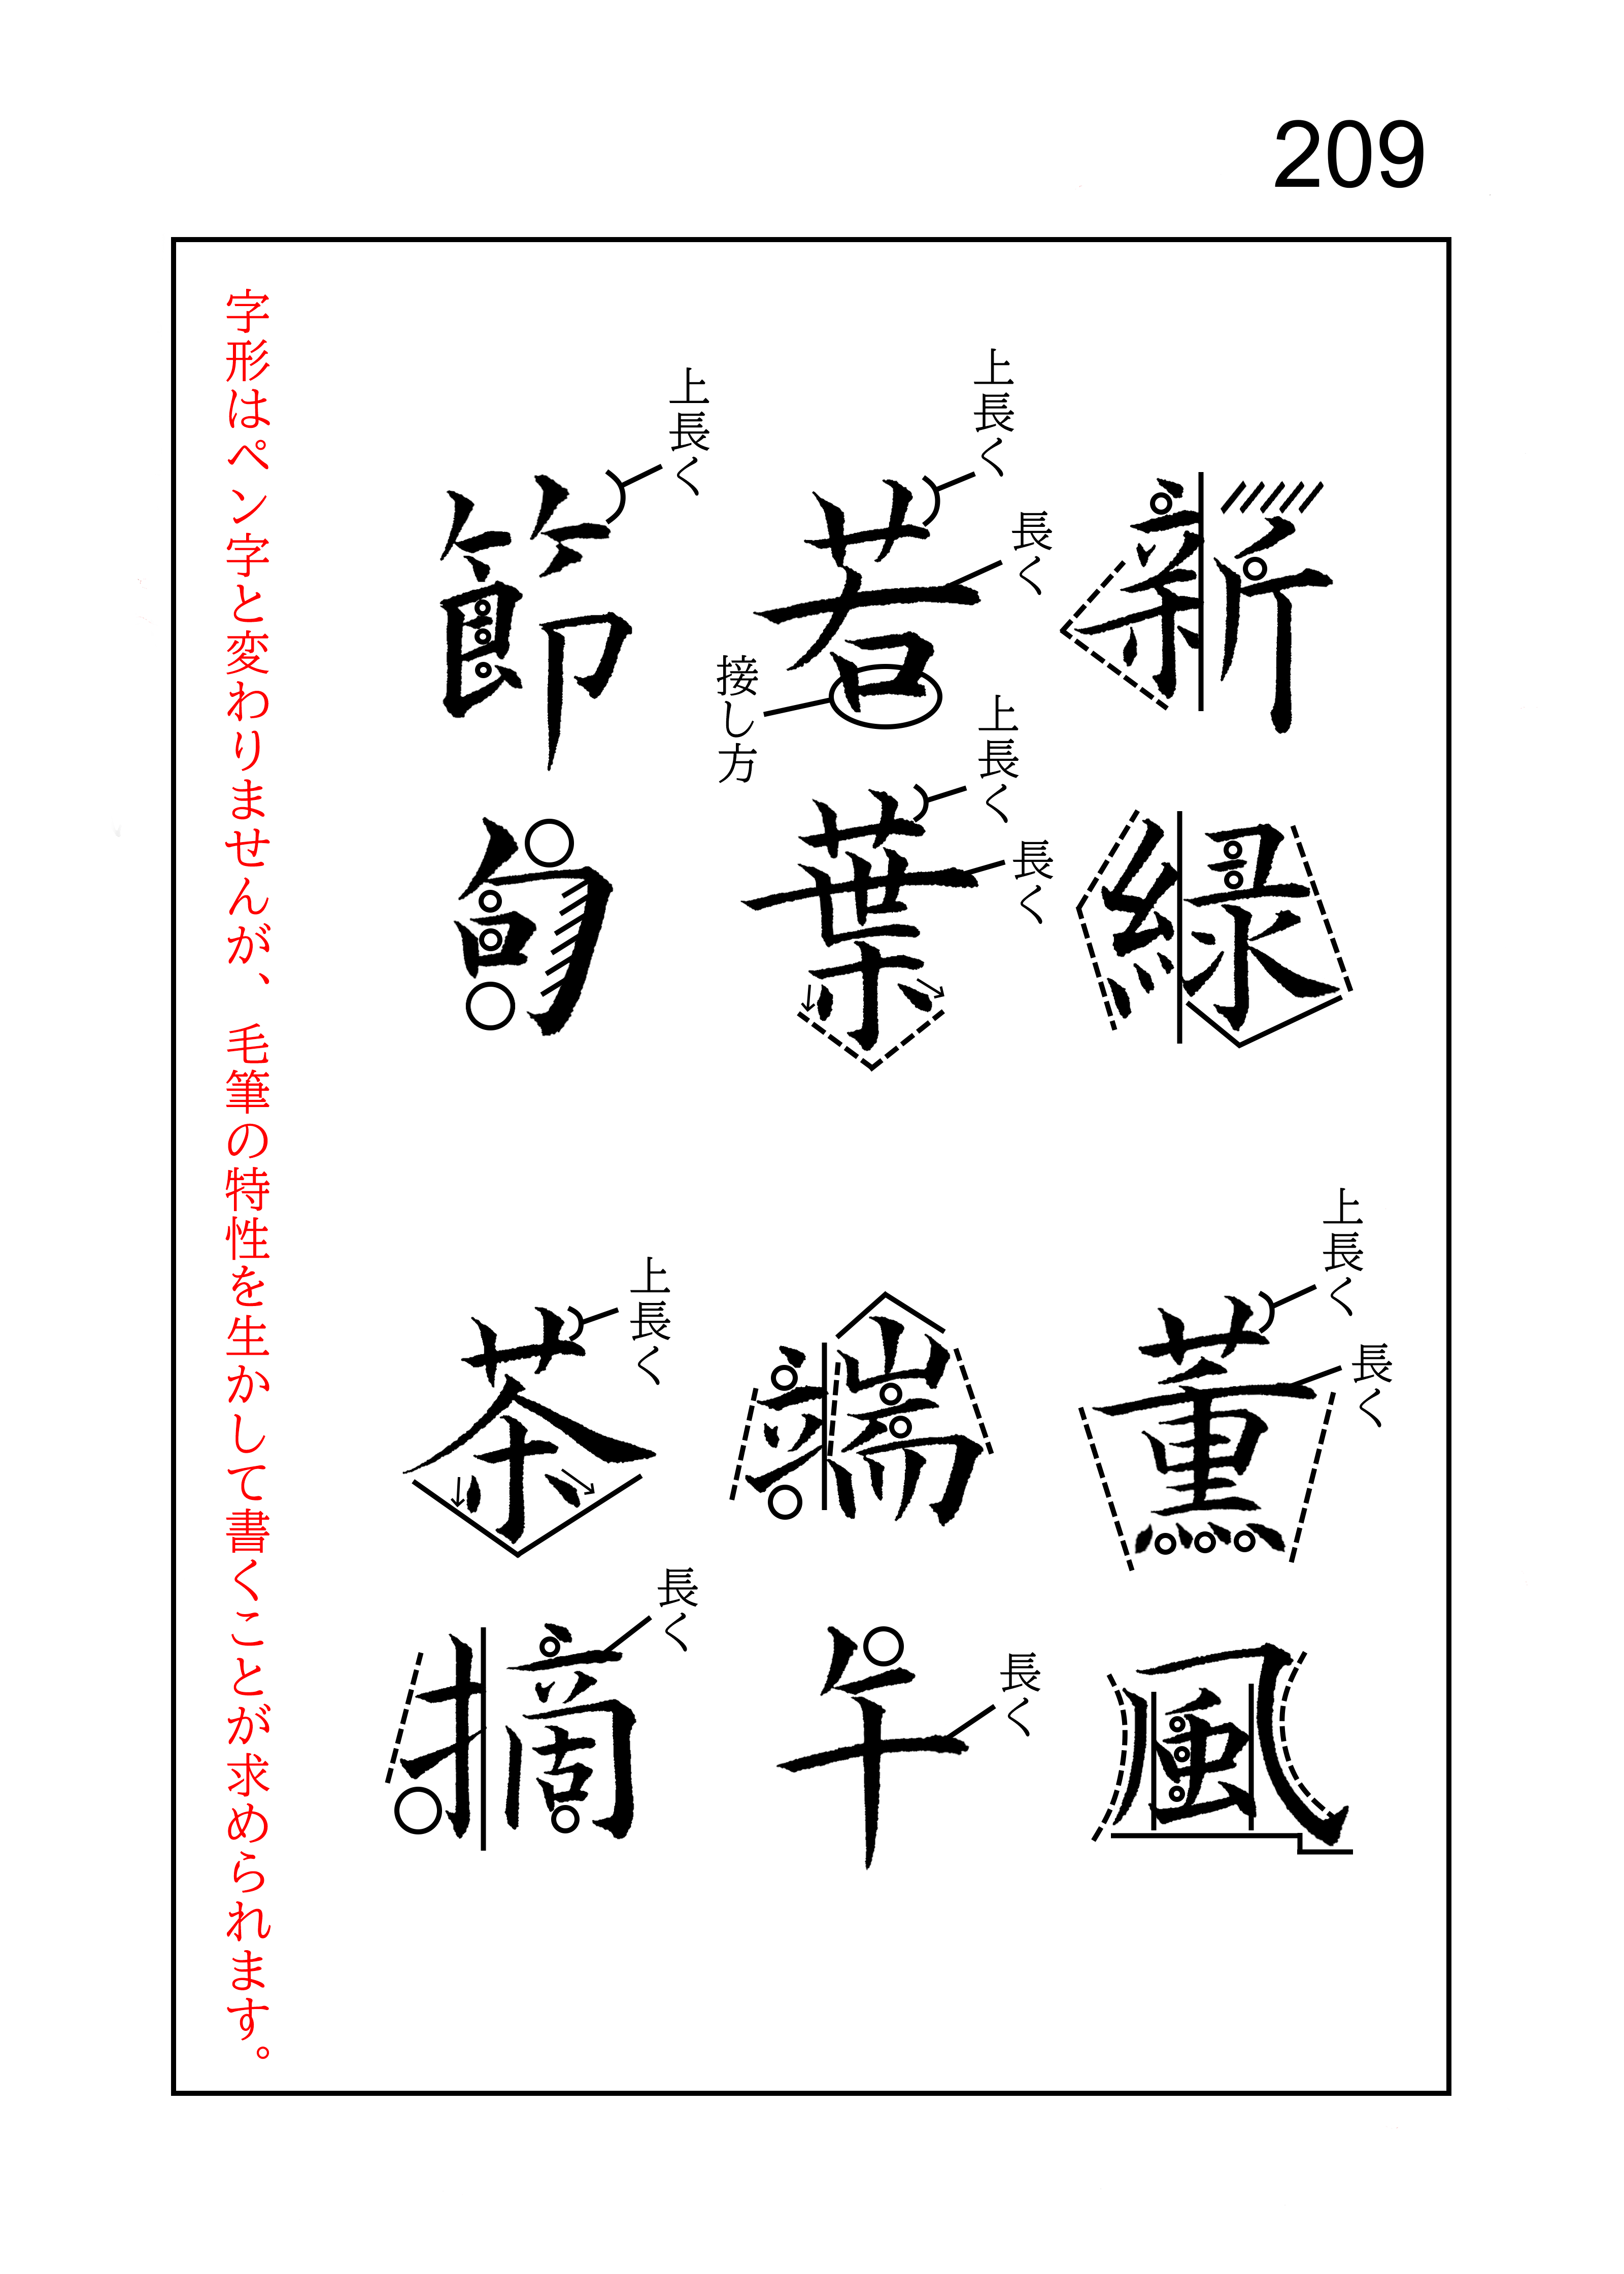 209
新緑
薫風
若葉
端午
節句
茶摘
上長く
長く
上長く
長く
接し方
上長く
長く
上長く
長く
長く
上長く
上長く
長く
字形はペン字と変わりませんが、毛筆の特性を生かして書くことが求められます。